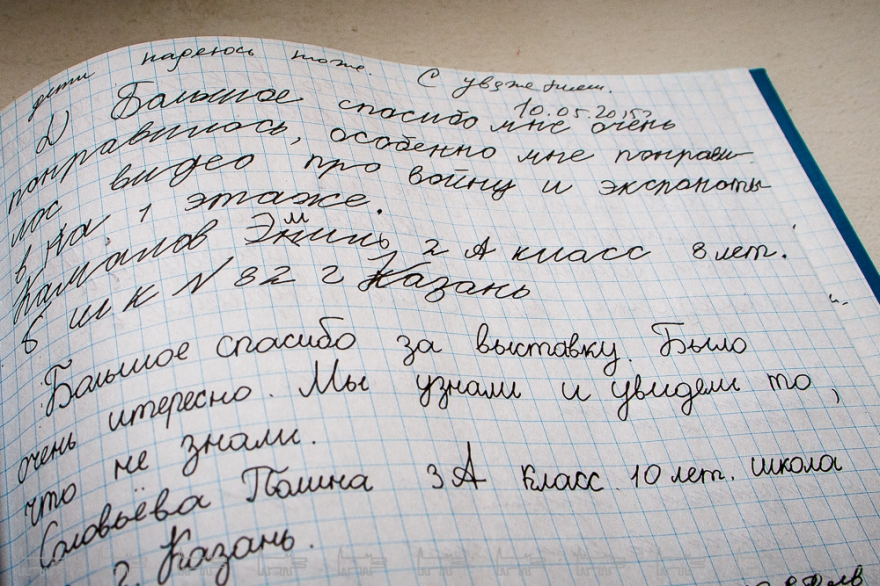 дети надеюсь тоже. С уважением.
10.05.2015г
2) Большое спасибо мне очень
понравилось, особенно мне понрави
лос видео про войну и экспонаты
в на 1 этаже.
Камалов Эмиль 2 А класс 8 лет.
шк N 82 г Казань
Большое спасибо за выставку. Было
очень итересно. Мы узнали и увидели то,
что не знали.
Соловьёва Полина 3 А класс. 10 лет. школа
г. Казань.